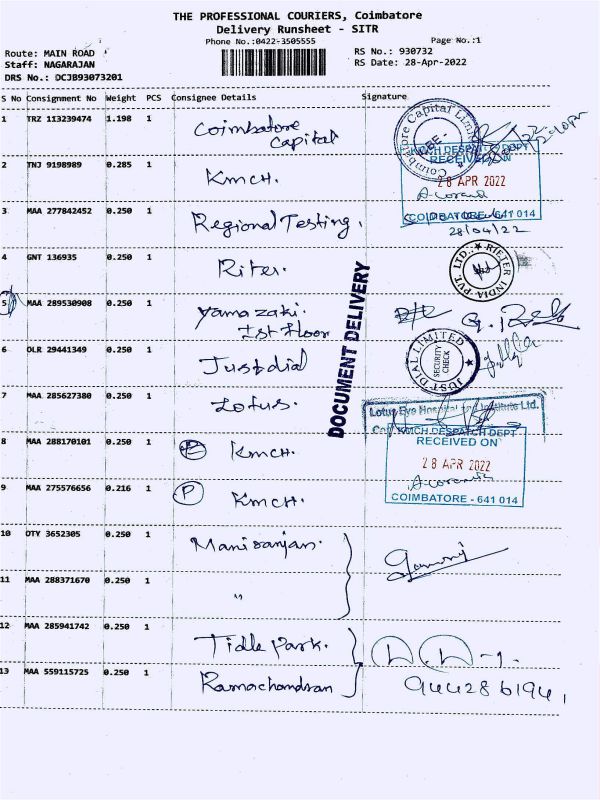 THE PROFESSIONAL COURIERS, Coimbatore
Delivery Runsheet - SITR
Phone No.:0422-3505555
Page No.:1
Route: MAIN ROAD
RS No.: 930732
Staff: NAGARAJAN
RS Date: 28-Apr-2022
DRS No.: DCJB93073201
S No Consignment No Weight PCS Consignee Details Signature
1 TRZ 113239474 1.198 1 Coimbatore Capital
Coimbatore Capital Limited
2 TNJ 9198989 0.285 1 KMCH.
KMCH DESPATCH DEPT
RECEIVED ON
28 APR 2022
COIMBATORE - 641 014
3 MAA 277842452 0.250 1 Regional Testing.
28/04/22
4 GNT 136935 0.250 1 Riter.
RIETER INDIA PVT. LTD.
5 MAA 289530908 0.250 1 Yamazaki.
1st floor
6 OLR 29441349 0.250 1 Justdial
JUST DIAL LIMITED
SECURITY CHECK
DOCUMENT DELIVERY
7 MAA 285627380 0.250 1 Lotus.
Lotus Eye Hospital and Institute Ltd.
8 MAA 288170101 0.250 1 KMCH.
KMCH DESPATCH DEPT
RECEIVED ON
28 APR 2022
COIMBATORE - 641 014
9 MAA 275576656 0.216 1 P KMCH.
10 OTY 3652305 0.250 1 Manisanjan.
11 MAA 288371670 0.250 1 "
12 MAA 285941742 0.250 1 Tidle Park.
13 MAA 559115725 0.250 1 Ramachandran
9442861941